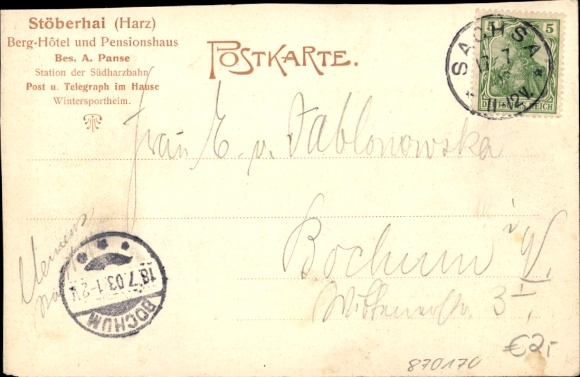 Stöberhai (Harz)
Berg-Hôtel und Pensionshaus
Bes. A. Panse
Station der Südharzbahn
Post u. Telegraph im Hause
Wintersportheim.
POSTKARTE.
SACHSA
11-12V.
5 5
DEUTSCHES REICH
Frau E. v. Jablonowska
Bochum i/W.
Wittenerstr. 3 I
BOCHUM
18.7.03.1-2V.
870170
€2,-